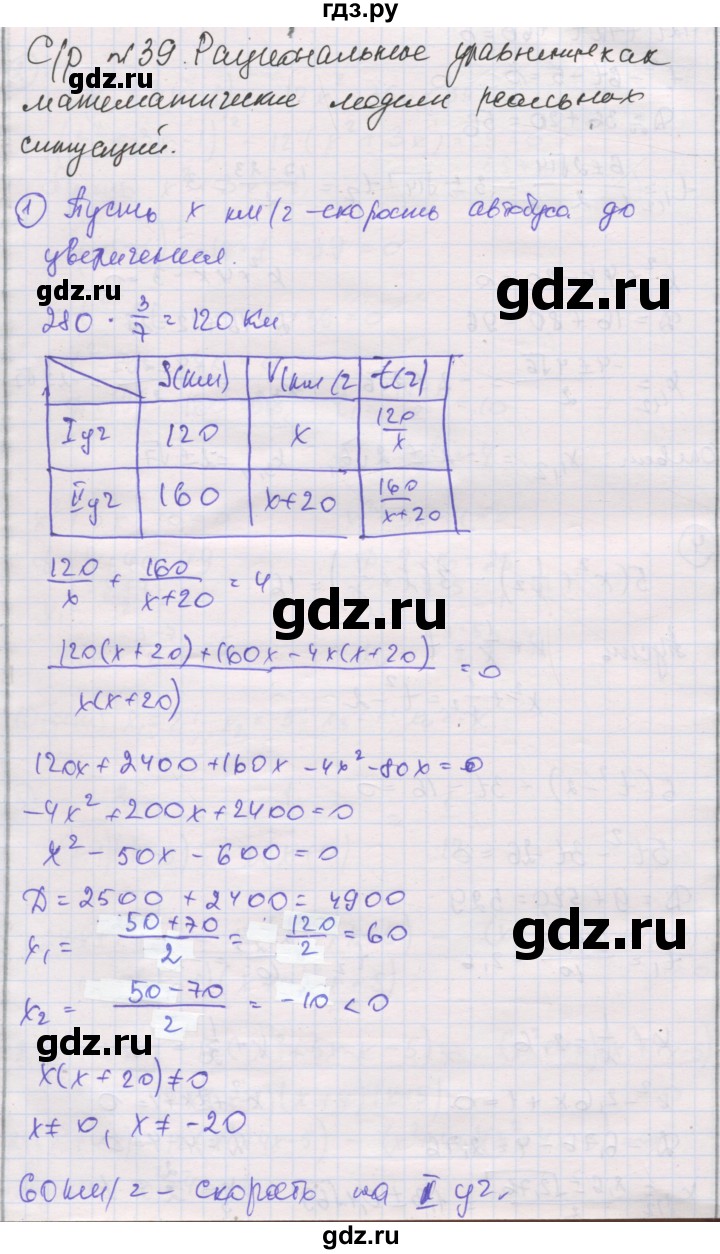 гдз.ру
С/р №39. Рациональные уравнения как
математические модели реальных
ситуаций.
gdz.ru
① Пусть x км/ч - скорость автобуса до
увеличения.
280 · 3/7 = 120 км
gdz.ru
S(км) V(км/ч t(ч)
I уч 120 x 120/x
II уч 160 x+20 160/(x+20)
120/x + 160/(x+20) = 4
gdz.ru
(120(x+20)+160x-4x(x+20))/(x(x+20)) = 0
120x+2400+160x-4x²-80x=0
-4x²+200x+2400=0
x²-50x-600=0
Д=2500+2400=4900
x₁= (50+70)/2 = 120/2 = 60
gdz.ru
x₂ = (50-70)/2 = -10 < 0
x(x+20)≠0
x≠0, x≠-20
60км/ч - скорость на I уч.
gdz.ru
gdz.ru